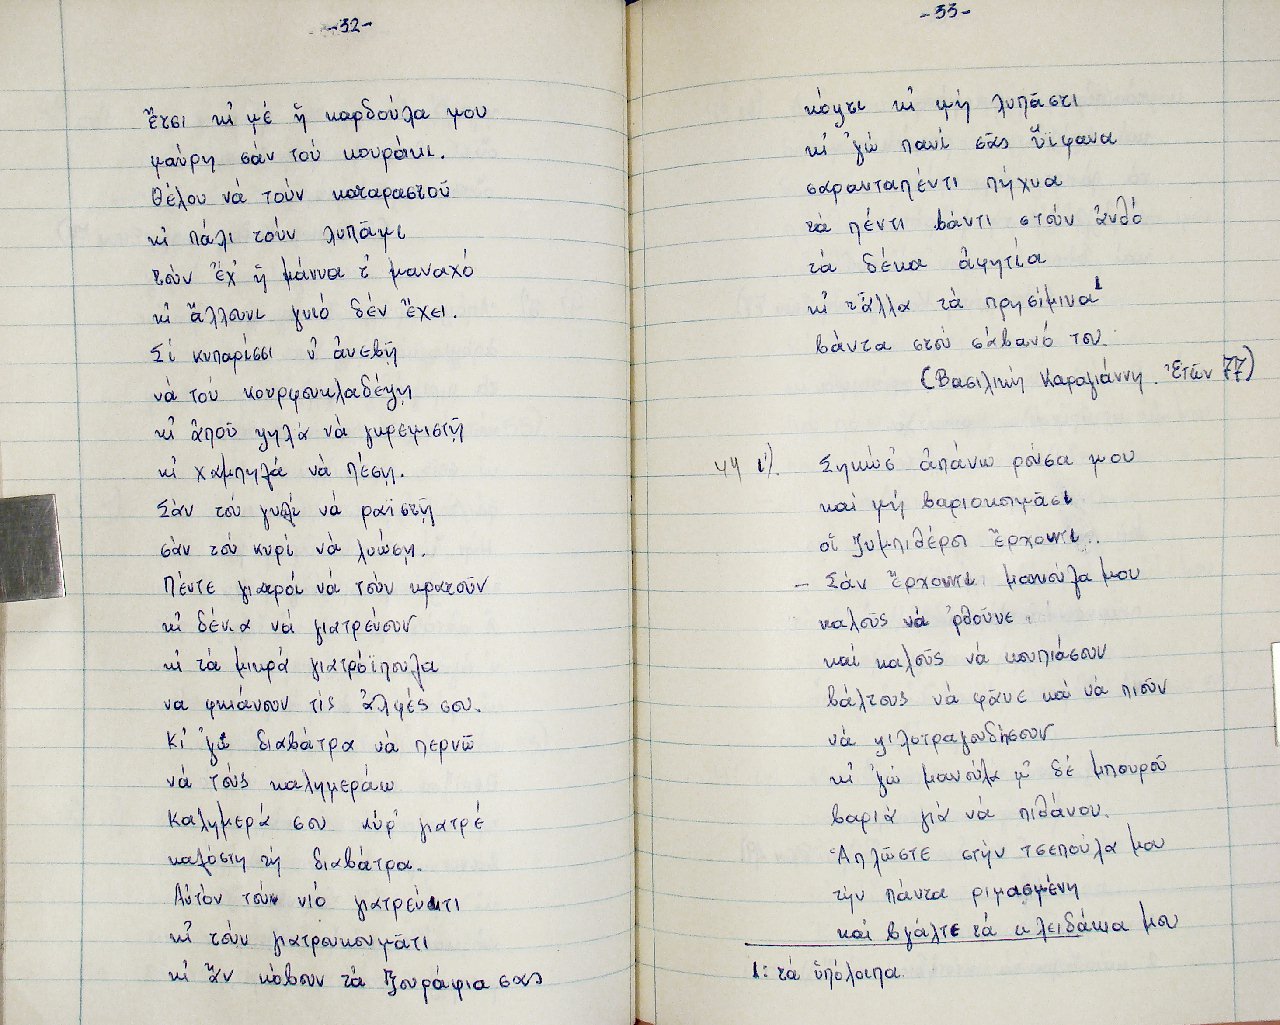 -32-
Ἔτσι κι μέ ἡ καρδούλα μου
μαύρη σάν τού κουράκι.
Θέλου νά τούν καταραστοῦ
κι πάλι τούν λυπᾶμι
τούν ἔχ' ἡ μάννα τ' μαναχό
κι ἄλλουνι γυιό δέν ἔχει.
Σί κυπαρίσσι ν' ἀνεβῆ
νά τού κουρφουκλαδέψη
κι ἀπού ψηλά νά γκρεμιστῆ
κι χαμηλά νά πέση.
Σάν τού γυαλί νά ραϊστῆ
σάν τού κυρί νά λυώση.
Πέντε γιατροί νά τούν κρατοῦν
κι δέκα νά γιατρεύουν
κι τά μικρά γιατρόϊπουλα
να φκιάνουν τίς ἀλφές σου.
Κι 'γώ διαβάτρα νά περνῶ
νά τούς καλημεράω
Καλημερά σου κύρ' γιατρέ
καλόστη τή διαβάτρα.
Αὐτόν τούν νιό γιατρεύατι
κι τούν γιατρουκουμᾶτι
κι ἄν κόβουν τά ξουράφια σας
-33-
κόψτι κι μή λυπᾶστι
κι 'γώ πανί σᾶς ὕϊφανα
σαρανταπέντι πήχυα
τά πέντι βάντι στούν ἀνθό
τά δέκα ἀφητία
κι τἄλλα τά πρησίμινα¹
βάντα στού σάβανό του.
(Βασιλική Καραγιάννη. Ἐτῶν 77)
44 ι'). Σηκώσ' ἀπάνω ρούσα μου
καί μή βαριοκοιμᾶσι
οἱ ξυμπιθέροι ἔρχοντι.
- Σάν ἔρχοντι μανούλα μου
καλούς νά 'ρθοῦνε.
καί καλούς νά κουπιάσουν
βάλτους νά φᾶνε καί νά πιοῦν
νά ψιλοτραγουδήσουν
κι 'γώ μανούλα μ' δέ μπουρού
βαριά γιά νά πιθάνου.
Ἁπλῶστε στήν τσεπούλα μου
τήν πάντα ριμασμένη
καί βγάλτε τά κλειδάκια μου
1: τά ὑπόλοιπα